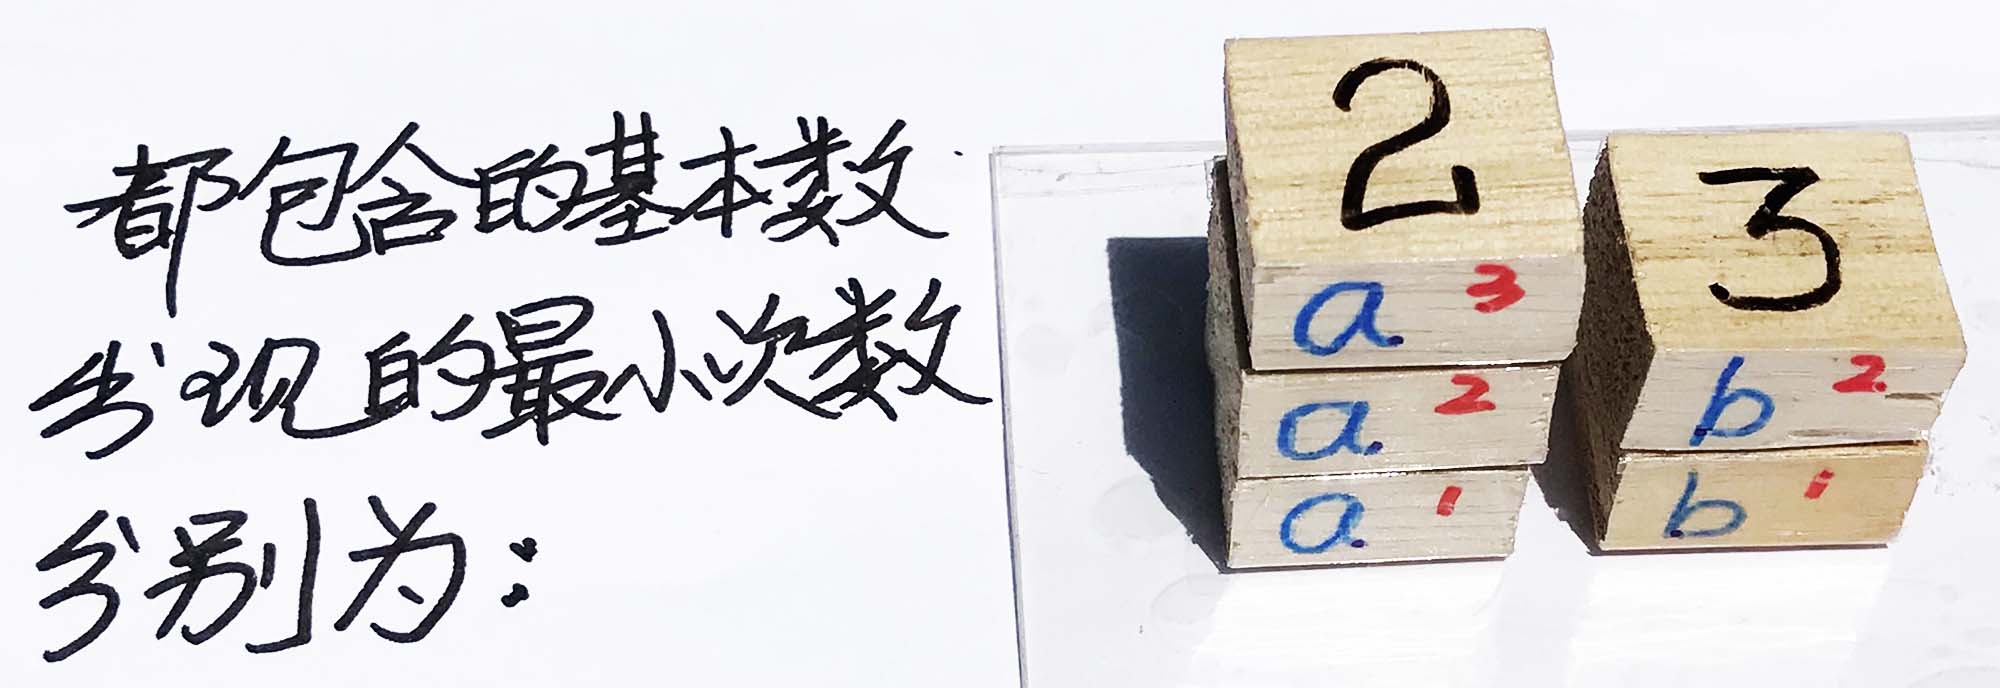 都包含的基本数
出现的最小次数
分别为:
2
a. 3
a. 2
a. 1
3
b 2
b 1